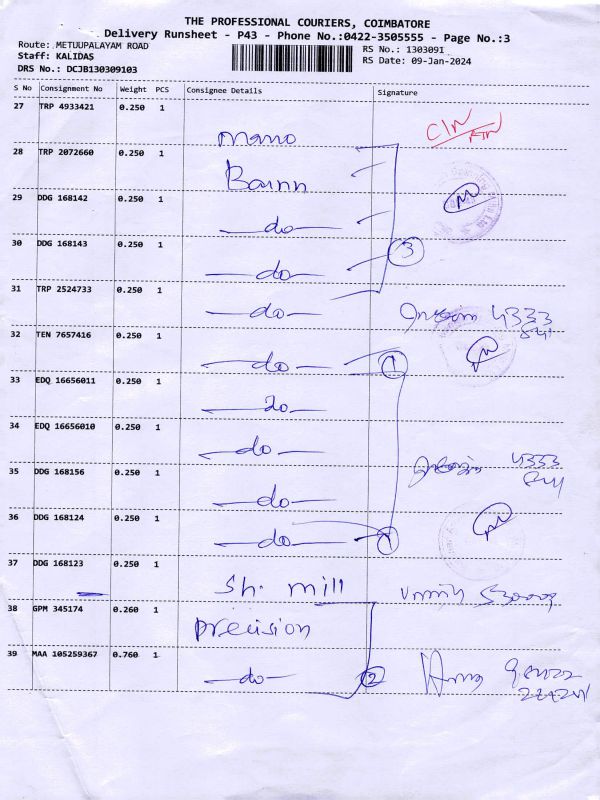 THE PROFESSIONAL COURIERS, COIMBATORE
Delivery Runsheet - P43 - Phone No.:0422-3505555 - Page No.:3
Route: METUUPALAYAM ROAD
RS No.: 130309I
Staff: KALIDAS
RS Date: 09-Jan-2024
DRS No.: DCJB130309103
S No Consignment No Weight PCS Consignee Details Signature
27 TRP 4933421 0.250 1
mano
28 TRP 2072660 0.250 1
Bann
29 DDG 168142 0.250 1
do
30 DDG 168143 0.250 1
do 3
31 TRP 2524733 0.250 1
do 4333
32 TEN 7657416 0.250 1
do 1
33 EDQ 16656011 0.250 1
do
34 EDQ 16656010 0.250 1
do
35 DDG 168156 0.250 1
do 4333
36 DDG 168124 0.250 1
do
37 DDG 168123 0.250 1
Sh. mill
38 GPM 345174 0.260 1
precision
39 MAA 105259367 0.760 1
do 2